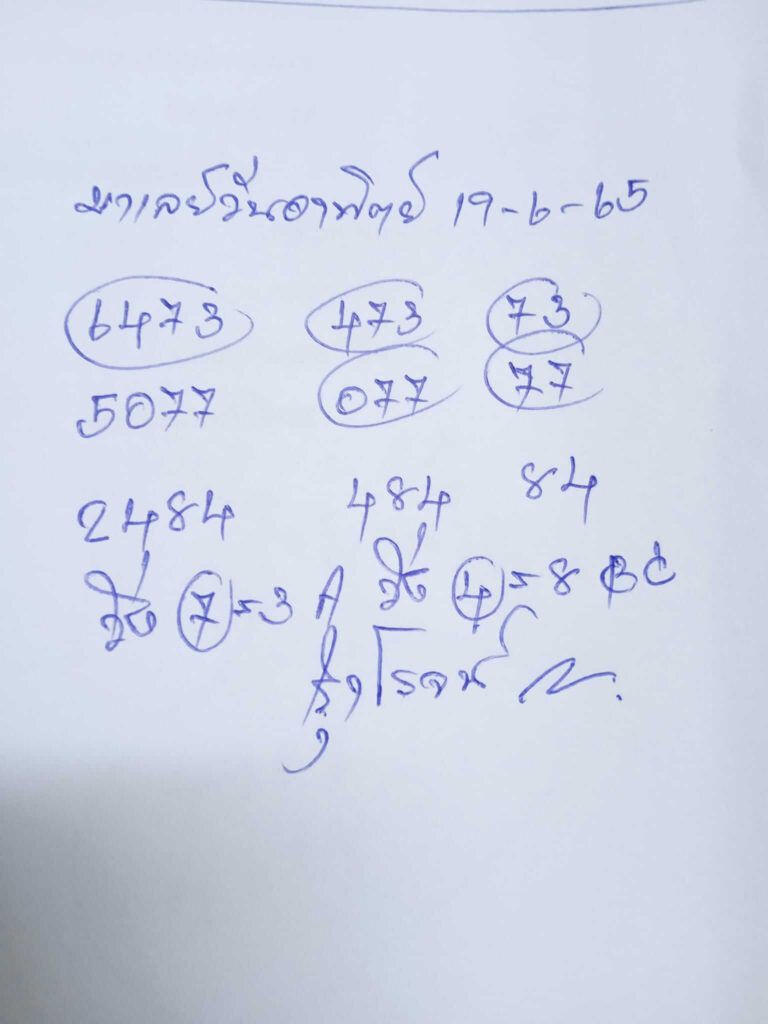 มาเลย์วันอาทิตย์ 19-6-65
6473 473 73
5077 077 77
2484 484 84
วิ่ง 7=3 A วิ่ง 4=8 BC
รุ่งโรจน์